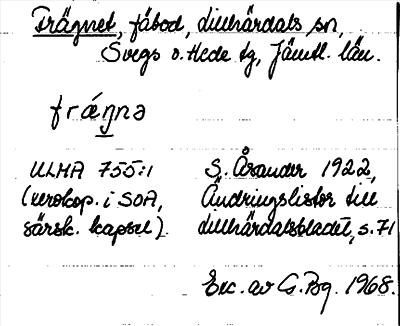 Trägnet, fäbod, Lillhärdals sn,
Svegs o. Hede tg, Jämtl. län.
fräŋnə
ULMA 755:1
(xerokop. i SOA,
särsk. kapsel).
S. Åsander 1922,
Ändringslistor till
Lillhärdalsbladet, s. 71
Exc. av G. Bg. 1968.